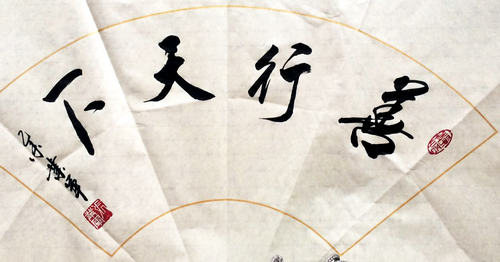 善行天下